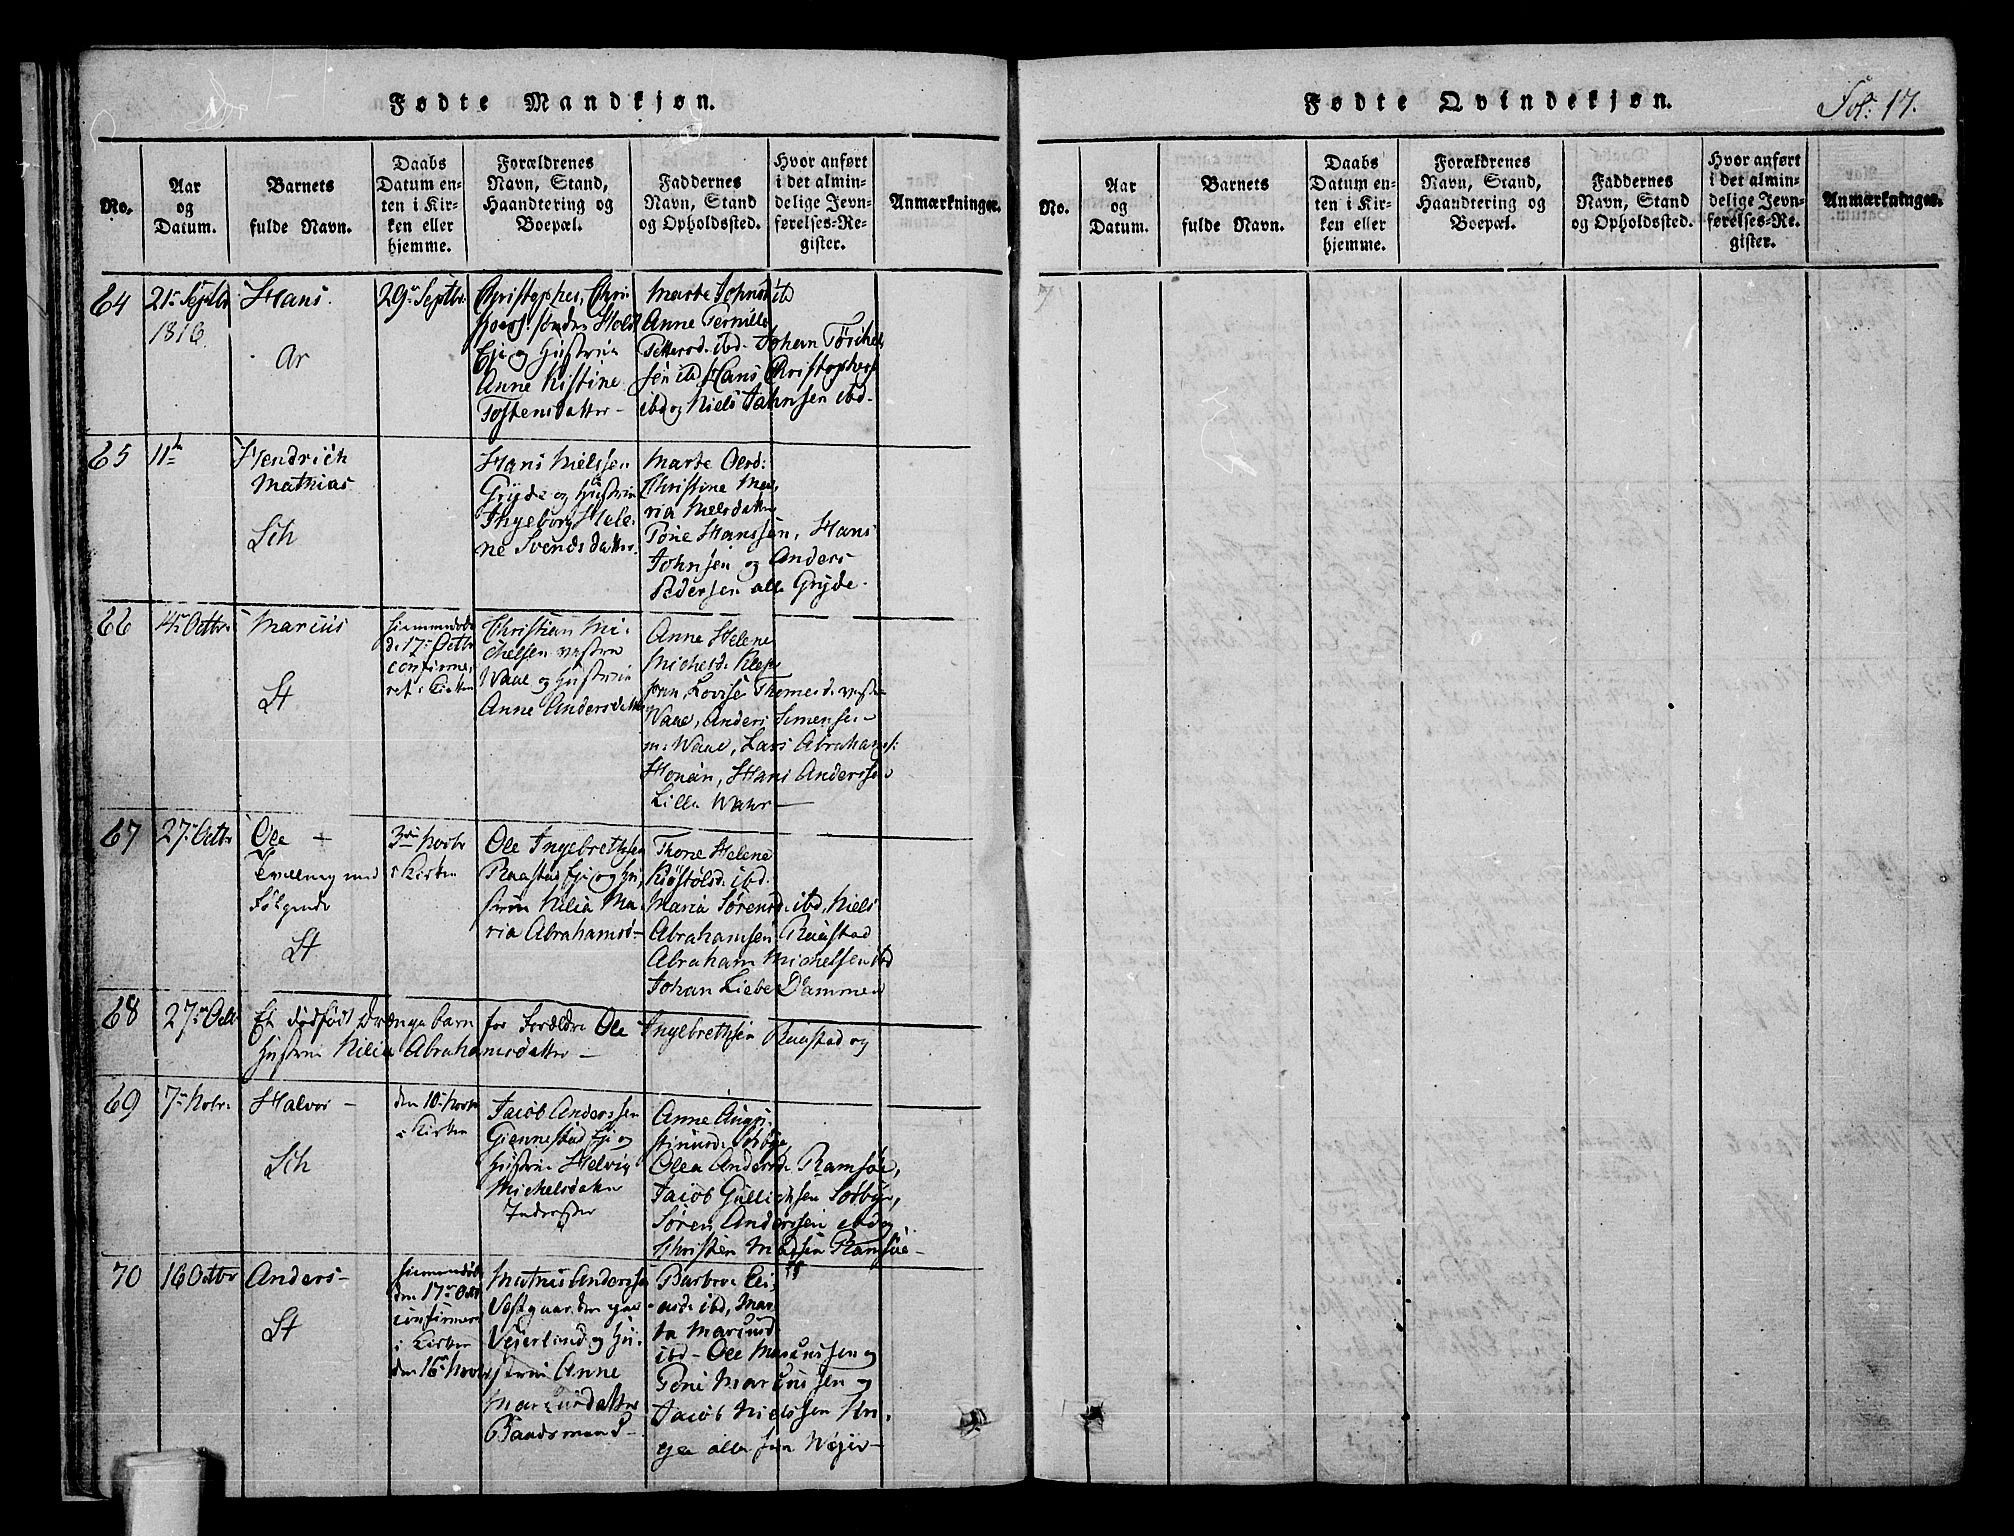 Fødte Mandkjøn.
No.
Aar
og
Datum.
Barnets
fulde Navn.
Daabs
Datum en-
ten i Kir-
ken eller
hjemme.
Forældrenes
Navn, Stand,
Haandtering og
Boepæl.
Faddernes
Navn, Stand
og Opholdssted.
Hvor anført
i det almin-
delige Jevn-
førelses-Re-
gister.
Anmærkninger.
64
21de Septbr
1816.
Hans.
Ar
29de Septbr
og Hustrue
Anne Kistine
Tostensdatter
Marte
Anne Pernille
ibd. Johan
Hans Christophers
ibd og Niels Jahnsen ibd.
65
11te
Hendrich
Mathias
Sch
Hans Nielssen
Gryde og Hustrue
Ingeborg Hele-
ne Svendsdatter.
Marte Olesd:
Christine Ma-
ria Nielsdatter
Tone Hanssen, Hans
Johnsen og Anders
Pedersen alle Gryde.
66
4de Octbr.
Marius
St
hiemmedøbt
d. 17de Octbr
confirme-
ret i Kirken
Christian Mi-
chelsen vestre
Waae og Hustrue
Anne Andersdatter
Anne Helene
Michelsd.
Lovise Thomesd. vestre
Waae, Anders Simensen
Waae, Lars Abrahams:
Hans Anderssen
Lille
67
27de Octbr
Ole +
Tvilling med
følgende
St
3die Novbr
i Kirken
Ole Ingebrethsen
Raastad Eje og Hu-
strue Nilia Ma-
ria Abrahamsd-
Thone Helene
ibd.
Maria Sørensd. ibd, Niels
Abrahamsen Raastad
Abraham Michelsen ibd
Johan Liebe Dammen
68
27de Octb
Et dødfødt Drænge barn for Forældre Ole Ingebrethsen Raastad og
Hustrue Nilia Abrahamsdatter -
69
7de Novbr.
Halvor -
Sch
den 10de Novbr
i Kirken
Jacob Anderssen
Giennestad Eje og
Hustrue Helvig
Michelsdatter
Anne Augu-
stinusd. Sørbye
Olea Andersd. Ramsøe,
Jacob Gullichsen Sørbye,
Søren Anderssen ibd og
Christen Madsen Ramsøe -
70
16 Octbr
Anders -
St
hiemmedøbt
den 17de Oct
confirmert
i Kirken
den 16de Novbr
Mathis Anderssen
Vestgaarden paa
Vejerland og Hu-
strue Anne
Marcusdatter
Baadsmand -
Barbroe Eli-
asd. ibd, Mar-
ta Marcusd
ibd - Ole Marcussen og
Tone Marcussen og
Jacob Nielssen
alle paa Wejer-
Fødte Qvindekjøn.
Fol: 17.
No.
Aar
og
Datum.
Barnets
fulde Navn.
Daabs
Datum en-
ten i Kir-
ken eller
hjemme.
Forældrenes
Navn, Stand,
Haandtering og
Boepæl.
Faddernes
Navn, Stand
og Opholdssted.
Hvor anført
i det almin-
delige Jevn-
førelses-Re-
gister.
Anmærkninger.